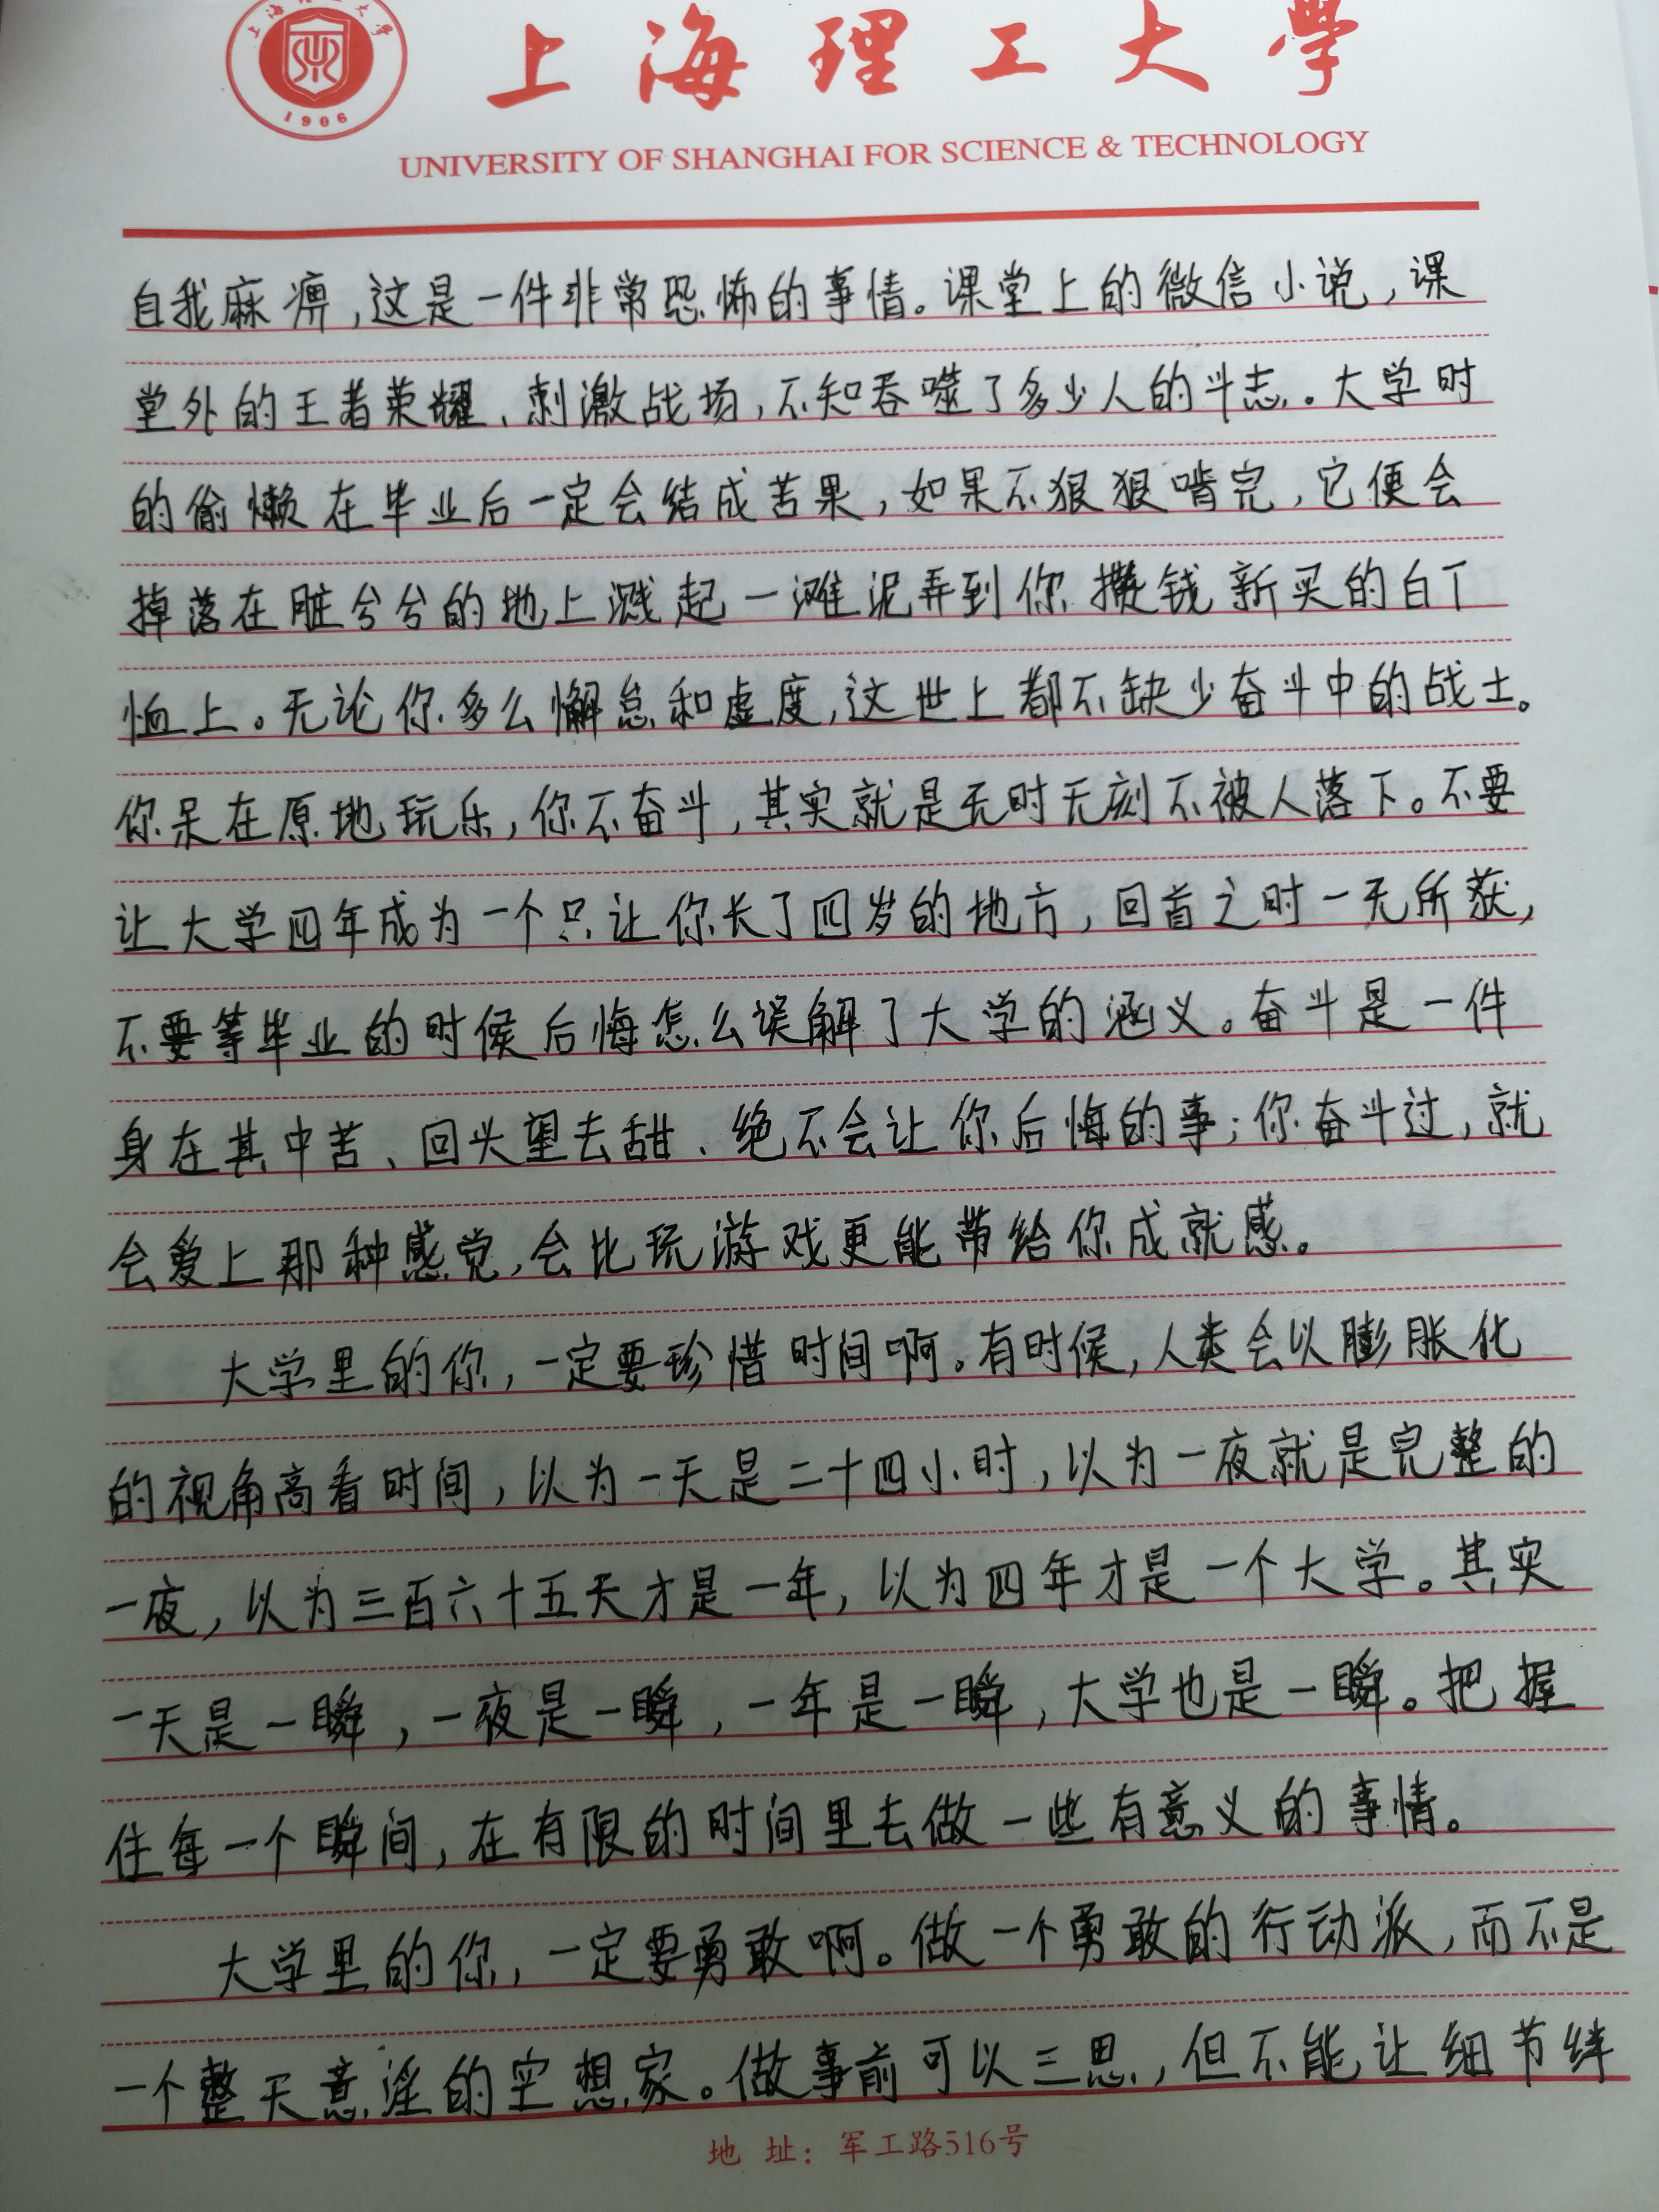 上海理工大學
1906
上海理工大學
UNIVERSITY OF SHANGHAI FOR SCIENCE & TECHNOLOGY
自我麻痹,这是一件非常恐怖的事情。课堂上的微信小说,课
堂外的王者荣耀、刺激战场,不知吞噬了多少人的斗志。大学时
的偷懒在毕业后一定会结成苦果,如果不狠狠啃完,它便会
掉落在脏兮兮的地上溅起一滩泥弄到你攒钱新买的白T
恤上。无论你多么懈怠和虚度,这世上都不缺少奋斗中的战士。
你呆在原地玩乐,你不奋斗,其实就是无时无刻不被人落下。不要
让大学四年成为一个只让你长了四岁的地方,回首之时一无所获,
不要等毕业的时候后悔怎么误解了大学的涵义。奋斗是一件
身在其中苦、回头望去甜、绝不会让你后悔的事;你奋斗过,就
会爱上那种感觉,会比玩游戏更能带给你成就感。
大学里的你,一定要珍惜时间啊。有时候,人类会以膨胀化
的视角高看时间,以为一天是二十四小时,以为一夜就是完整的
一夜,以为三百六十五天才是一年,以为四年才是一个大学。其实
一天是一瞬,一夜是一瞬,一年是一瞬,大学也是一瞬。把握
住每一个瞬间,在有限的时间里去做一些有意义的事情。
大学里的你,一定要勇敢啊。做一个勇敢的行动派,而不是
一个整天意淫的空想家。做事前可以三思,但不能让细节绊
地 址:军工路516号